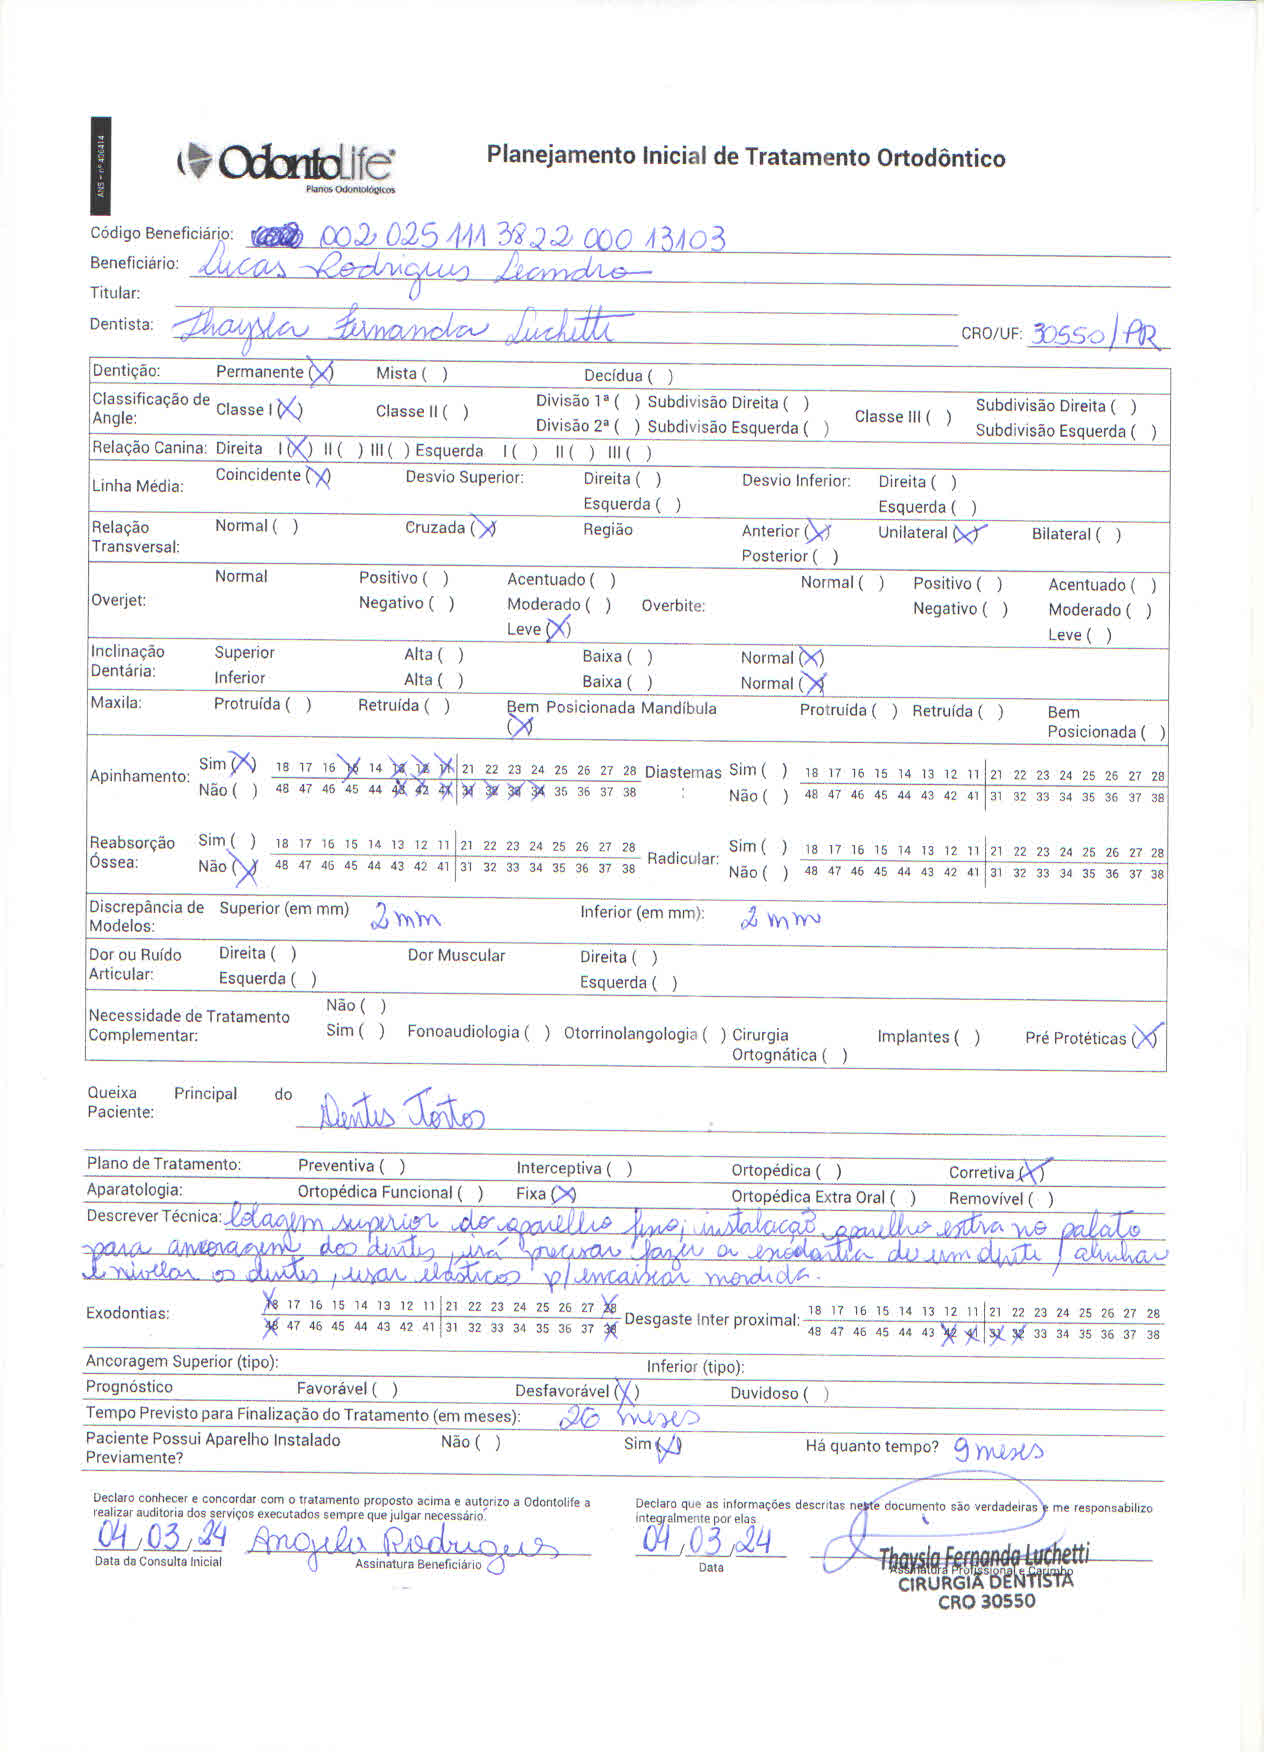 ANS - nº 406414
OdontoLife
Planos Odontológicos
Planejamento Inicial de Tratamento Ortodôntico
Código Beneficiário: 002 025 111 3822 000 13103
Beneficiário: Lucas Rodrigues Leandro
Titular:
Dentista: Thaysla Fernanda Luchetti CRO/UF: 30550/PR
Dentição: Permanente (X) Mista ( ) Decídua ( )
Classificação de Angle: Classe I (X) Classe II ( ) Divisão 1ª ( ) Subdivisão Direita ( ) Classe III ( ) Subdivisão Direita ( )
Divisão 2ª ( ) Subdivisão Esquerda ( ) Subdivisão Esquerda ( )
Relação Canina: Direita I (X) II ( ) III ( ) Esquerda I ( ) II ( ) III ( )
Linha Média: Coincidente (X) Desvio Superior: Direita ( ) Desvio Inferior: Direita ( )
Esquerda ( ) Esquerda ( )
Relação Transversal: Normal ( ) Cruzada (X) Região Anterior (X) Unilateral (X) Bilateral ( )
Posterior ( )
Overjet: Normal Positivo ( ) Acentuado ( ) Overbite: Normal ( ) Positivo ( ) Acentuado ( )
Negativo ( ) Moderado ( ) Negativo ( ) Moderado ( )
Leve (X) Leve ( )
Inclinação Dentária: Superior Alta ( ) Baixa ( ) Normal (X)
Inferior Alta ( ) Baixa ( ) Normal (X)
Maxila: Protruída ( ) Retruída ( ) Bem Posicionada (X) Mandíbula Protruída ( ) Retruída ( ) Bem Posicionada ( )
Apinhamento: Sim (X) 18 17 16 15 14 13 12 11 21 22 23 24 25 26 27 28 Diastemas: Sim ( ) 18 17 16 15 14 13 12 11 21 22 23 24 25 26 27 28
Não ( ) 48 47 46 45 44 43 42 41 31 32 33 34 35 36 37 38 Não ( ) 48 47 46 45 44 43 42 41 31 32 33 34 35 36 37 38
Reabsorção Óssea: Sim ( ) 18 17 16 15 14 13 12 11 21 22 23 24 25 26 27 28 Radicular: Sim ( ) 18 17 16 15 14 13 12 11 21 22 23 24 25 26 27 28
Não (X) 48 47 46 45 44 43 42 41 31 32 33 34 35 36 37 38 Não ( ) 48 47 46 45 44 43 42 41 31 32 33 34 35 36 37 38
Discrepância de Modelos: Superior (em mm) 2 mm Inferior (em mm): 2 mm
Dor ou Ruído Articular: Direita ( ) Dor Muscular Direita ( )
Esquerda ( ) Esquerda ( )
Necessidade de Tratamento Complementar: Não ( )
Sim ( ) Fonoaudiologia ( ) Otorrinolangologia ( ) Cirurgia Ortognática ( ) Implantes ( ) Pré Protéticas (X)
Queixa Principal do Paciente: Dentes Tortos
Plano de Tratamento: Preventiva ( ) Interceptiva ( ) Ortopédica ( ) Corretiva (X)
Aparatologia: Ortopédica Funcional ( ) Fixa (X) Ortopédica Extra Oral ( ) Removível ( )
Descrever Técnica: Colagem superior do aparelho fixo, instalação aparelho extra no palato
para ancoragem dos dentes, irá precisar fazer a exodontia de um dente, alinhar
e nivelar os dentes, usar elásticos p/ encaixar mordida.
Exodontias: 18 17 16 15 14 13 12 11 21 22 23 24 25 26 27 28 Desgaste Inter proximal: 18 17 16 15 14 13 12 11 21 22 23 24 25 26 27 28
48 47 46 45 44 43 42 41 31 32 33 34 35 36 37 38 48 47 46 45 44 43 42 41 31 32 33 34 35 36 37 38
Ancoragem Superior (tipo): Inferior (tipo):
Prognóstico Favorável ( ) Desfavorável (X) Duvidoso ( )
Tempo Previsto para Finalização do Tratamento (em meses): 26 meses
Paciente Possui Aparelho Instalado Previamente? Não ( ) Sim (X) Há quanto tempo? 9 meses
Declaro conhecer e concordar com o tratamento proposto acima e autorizo a Odontolife a
realizar auditoria dos serviços executados sempre que julgar necessário.
Declaro que as informações descritas neste documento são verdadeiras e me responsabilizo
integralmente por elas
04/03/24 Angela Rodrigues 04/03/24
Data da Consulta Inicial Assinatura Beneficiário Data Assinatura Profissional e Carimbo
Thaysla Fernanda Luchetti
CIRURGIÃ DENTISTA
CRO 30550